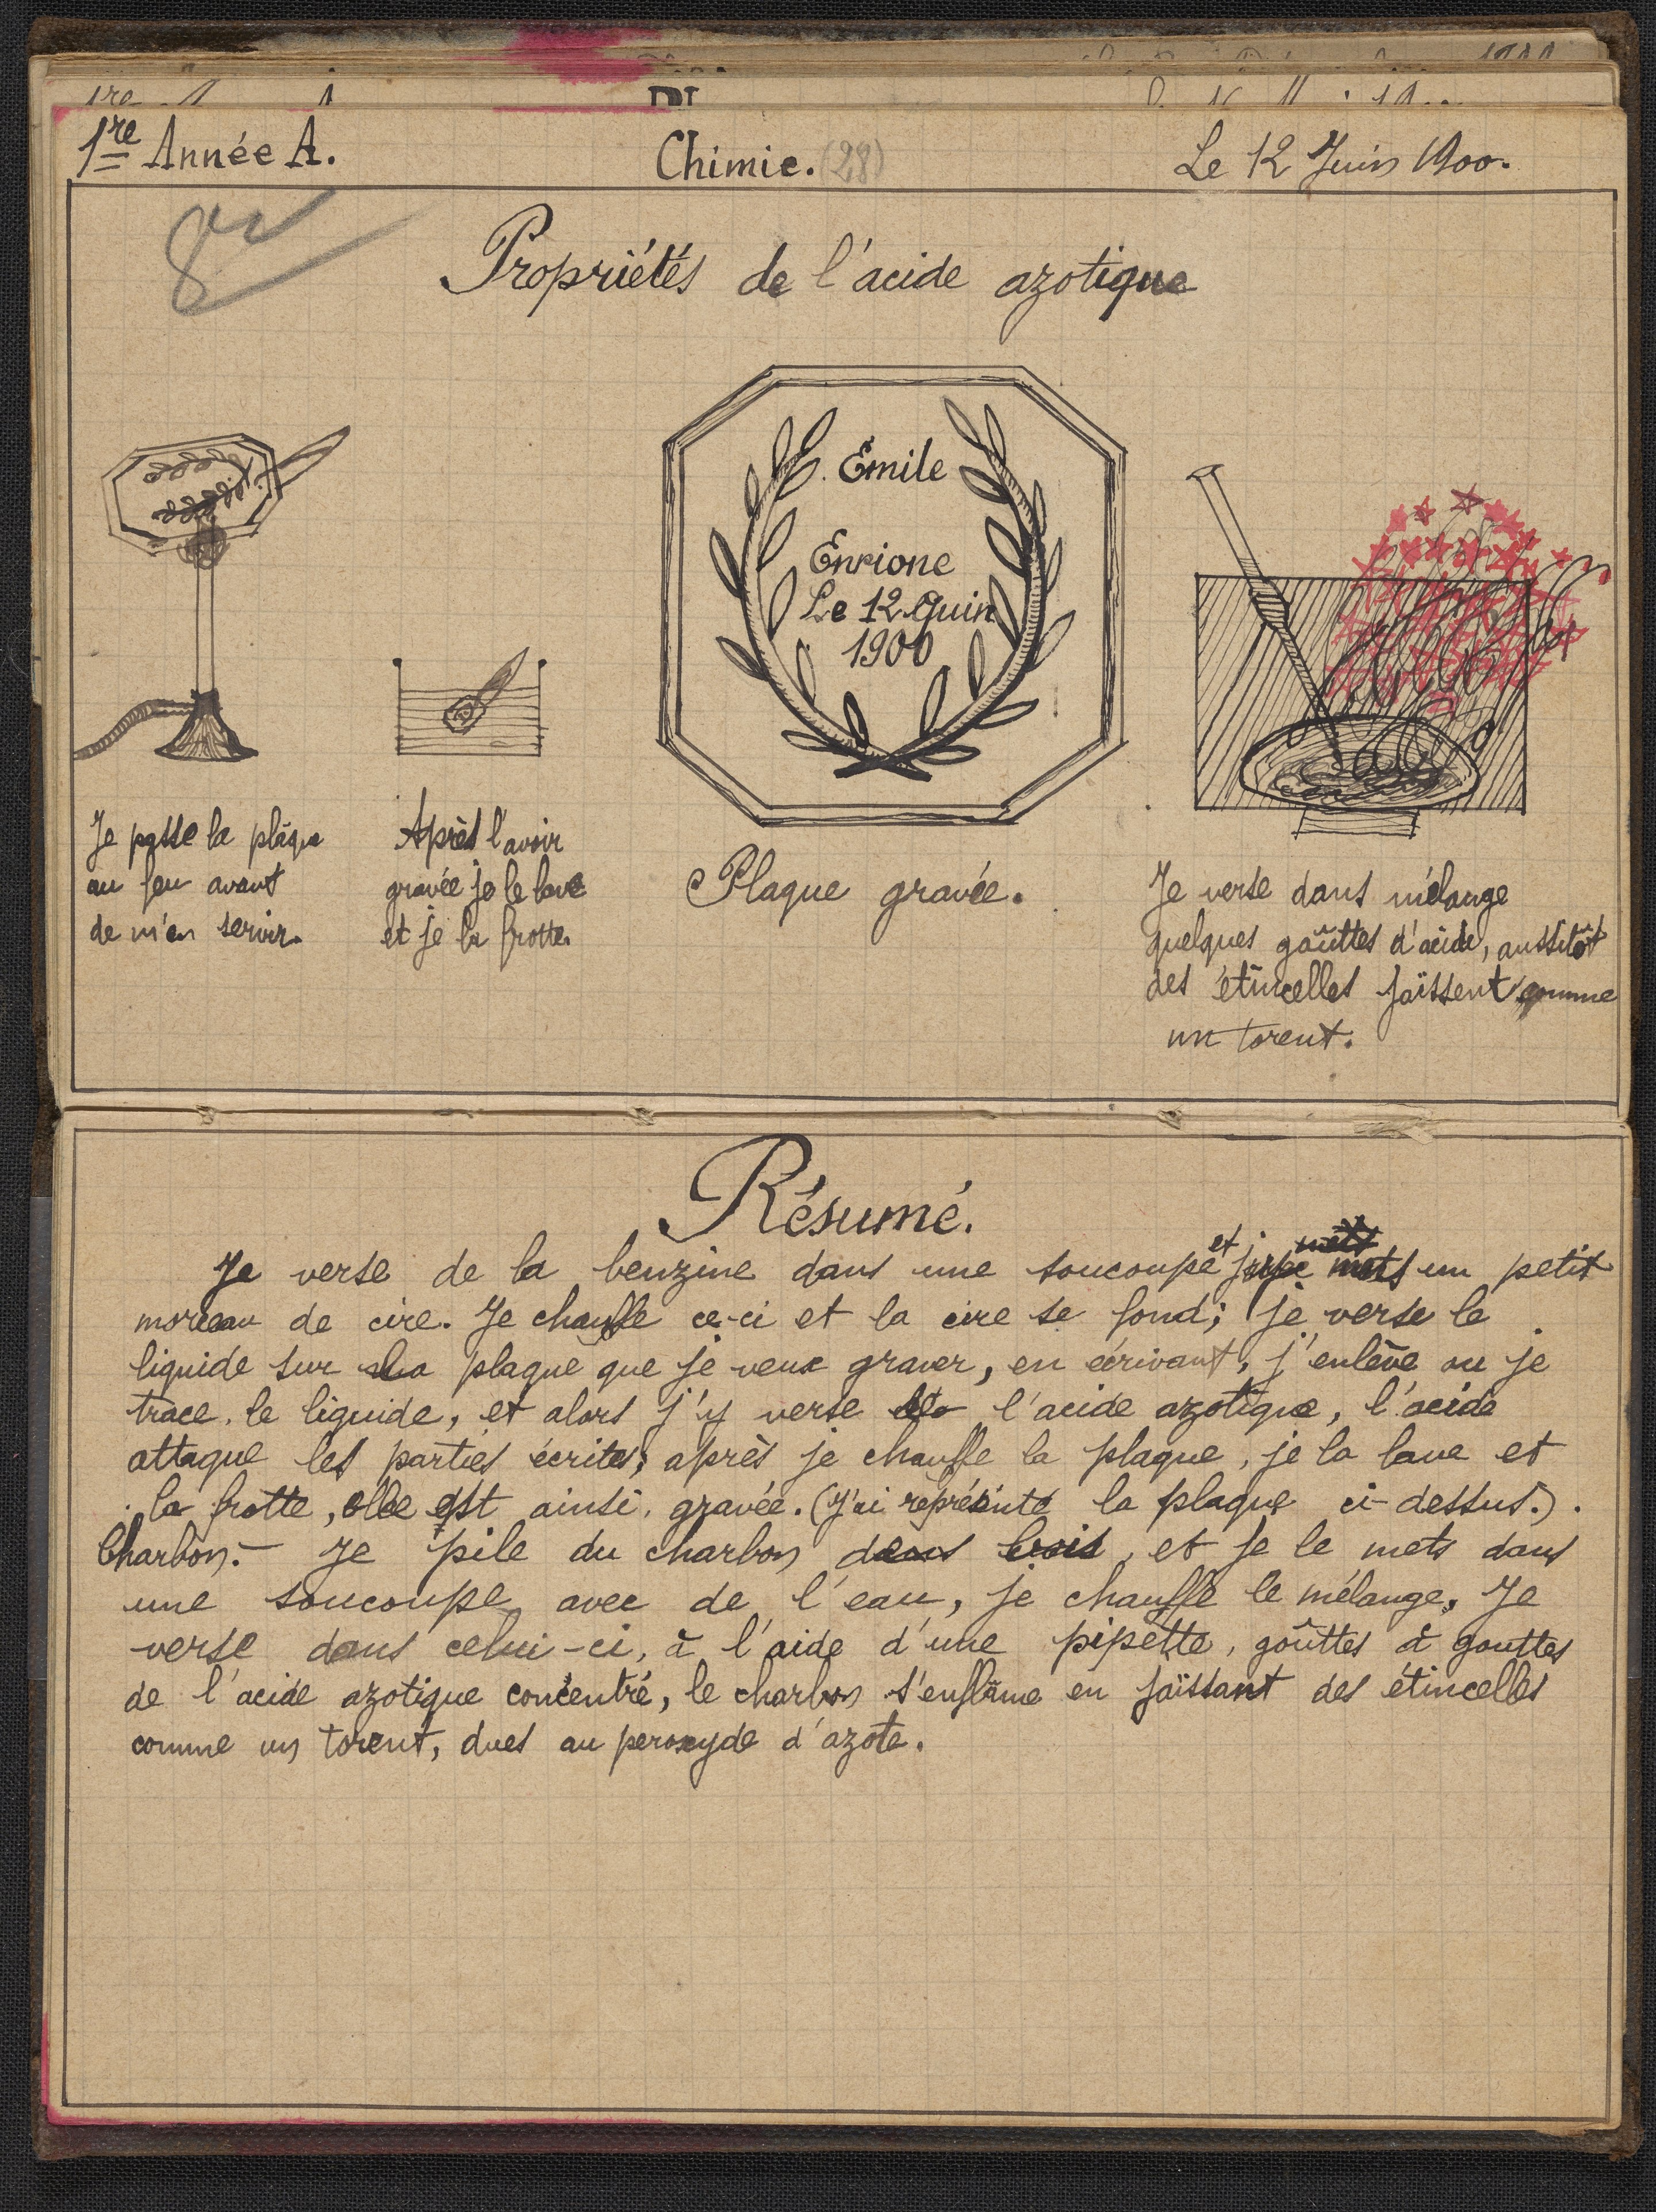 1re Année A.
Chimie. (28)
Le 12 Juin 1900.
8
Propriétés de l'acide azotique
Émile
Enrione
Le 12 Juin
1900
Je passe la plaque
au feu avant
de m'en servir.
Après l'avoir
gravée je le lave
et je la frotte.
Plaque gravée.
Je verse dans mélange
quelques goûttes d'acide, aussitôt
des étincelles jaïssent comme
un torent.
Résumé.
Je verse de la benzine dans une soucoupe et je mets un petit
morceau de cire. Je chauffe ce-ci et la cire se fond; je verse le
liquide sur la plaque que je veux graver, en écrivant, j'enlève ou je
trace. le liquide, et alors j'y verse l'acide azotique, l'acide
attaque les parties écrites; après je chauffe la plaque, je la lave et
la frotte, elle est ainsi. gravée. (J'ai représinté la plaque ci-dessus.).
Charbon.- Je pile du charbon dans bois, et je le mets dans
une soucoupe avec de l'eau, je chauffe le mélange. Je
verse dans celui-ci, à l'aide d'une pipètte, goûttes à gouttes
de l'acide azotique concentré, le charbon s'enflâme en jaïssant des étincelles
comme un torent, dues au peroxyde d'azote.